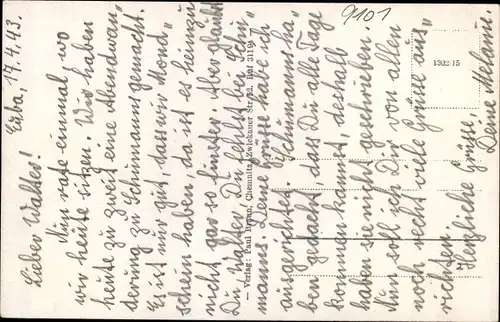 9101
Erba, 17.4.43.
Lieber Walter!
Nun rate einmal, wo
wir heute sitzen. Wir haben
heute zu zweit eine Abendwan"
derung zu Schumanns gemacht.
Es ist nur gut, dass wir Mond"
schein haben, da ist es heimzu
nicht gar so finster. Aber glaubst
Du Walter, Du fehlst bei Schu"
manns. Deine Grüsse habe ich
ausgerichtet. Schumanns ha"
ben gedacht, dass Du alle Tag
kommen kannst, deshalb
haben sie nicht geschrieben.
Nun soll ich Dir von allen
noch recht viele Grüße aus"
richten.
Herzliche Grüsse,
Deine Melanie.
— Verlag: Paul Braun, Chemnitz, Zwickauer Str. 52, Ruf 31194 —
1302/15